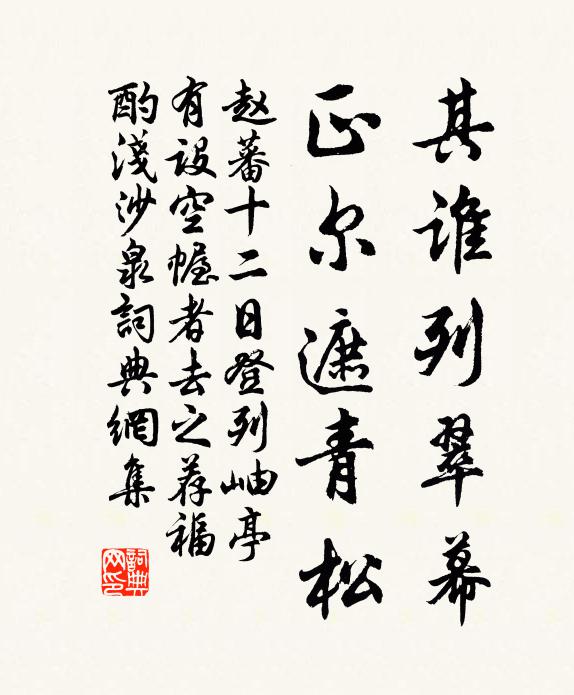 其谁列翠幕
正尔遮青松
赵蕃十二日登列岫亭
有设空幄者去之荐福
酌浅沙泉詞典網集
詞典網印